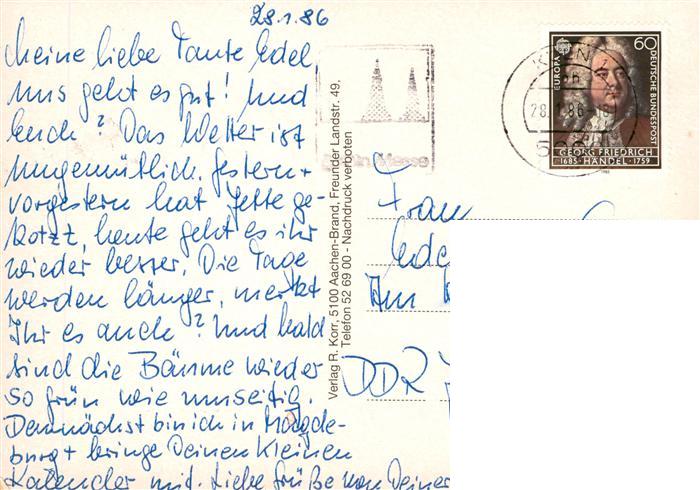 28.1.86
Meine liebe Tante Edel,
uns geht es gut! Und
Euch? Das Wetter ist
ungemütlich. Gestern +
vorgestern hat Jette ge-
kotzt, heute geht es ihr
wieder besser. Die Tage
werden länger, merkt
Ihr es auch? Und bald
sind die Bäume wieder
so grün wie umseitig.
Demnächst bin ich in Magde-
burg + bringe Deinen kleinen
Kalender mit. Liebe Grüße von Deiner
Verlag R. Korr, 5100 Aachen-Brand, Freunder Landstr. 49,
Telefon 52 69 00 - Nachdruck verboten
KÖLN
28.1.86
EUROPA
60
DEUTSCHE BUNDESPOST
GEORG FRIEDRICH
1685 HÄNDEL 1759
Frau
Ede
Im
DDR